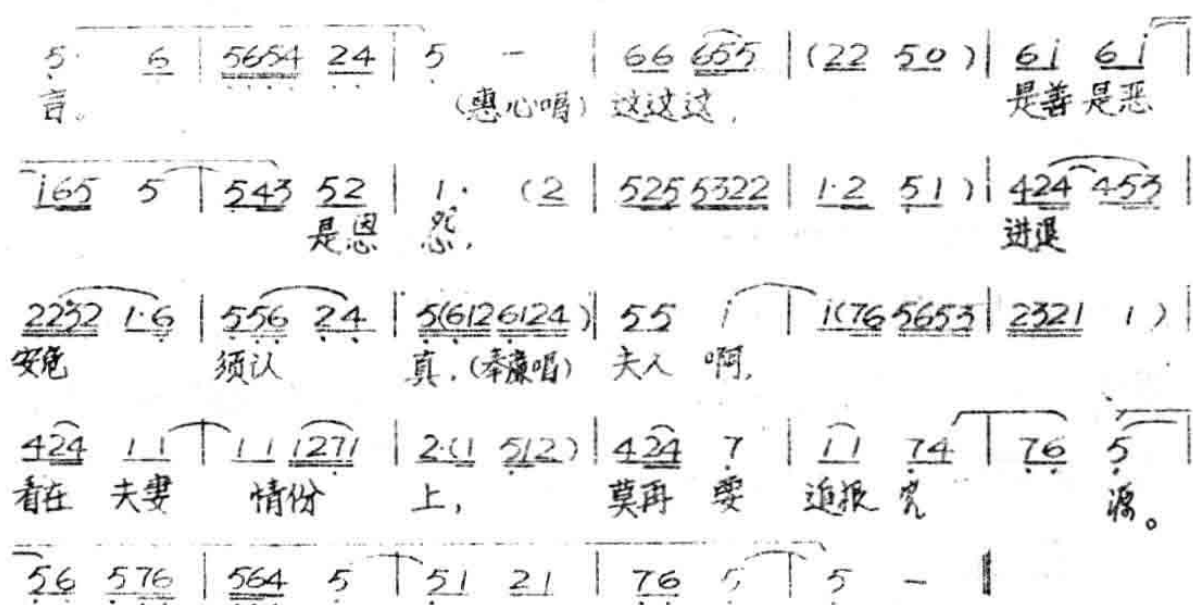 5· 6 | 5654 24 | 5 - | 66 655 | (22 50) | 61 61 |
言。 (惠心唱) 这这这, 是善是恶
165 5 | 543 52 | 1· (2 | 525 5322 | 1·2 51) | 424 453 |
是恩 怨, 进退
2232 1·6 | 556 24 | 5(612 6124) | 55 i | i(76 5653 | 2321 1) |
安危 须认 真,(奉廉唱) 夫人 啊,
424 11 | 11 1271 | 2·(1 512) | 424 7 | 11 74 | 76 5
看在 夫妻 情份 上, 莫再 要 追根 究 源。
56 576 | 564 5 | 51 21 | 76 5 | 5 -